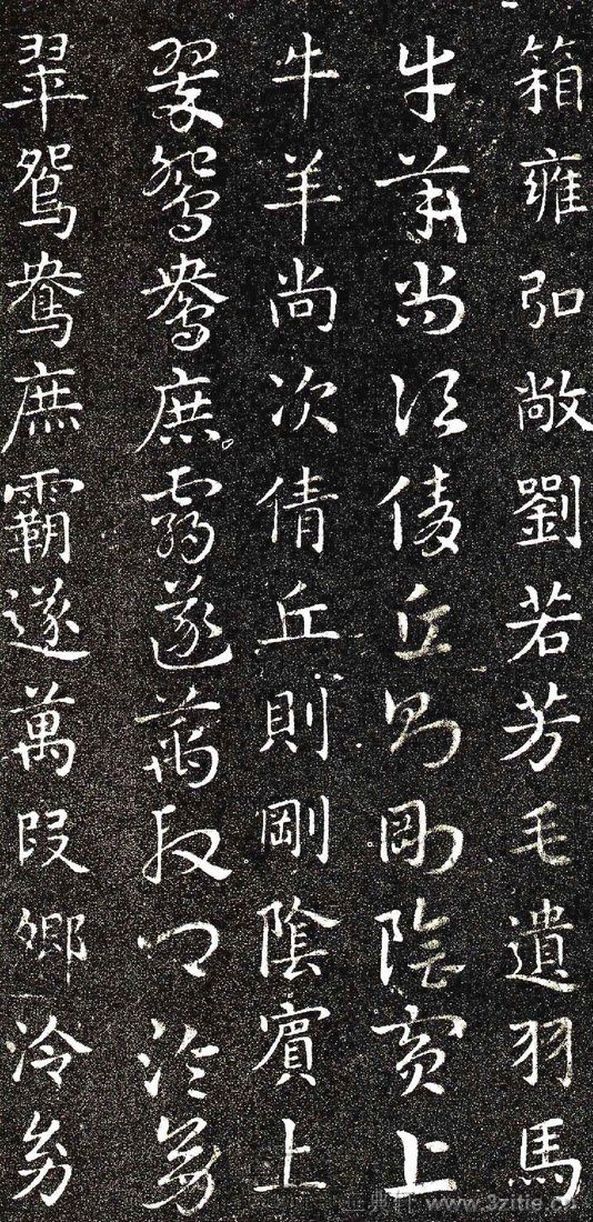 箱雍弘敞劉若芳毛遺羽馬
牛羊尚次倩丘則剛陰賓上
牛羊尚次倩丘則剛陰賓上
翠鴛鴦庶霸遂萬段卿冷
翠鴛鴦庶霸遂萬段卿冷
www.3zitie.cn